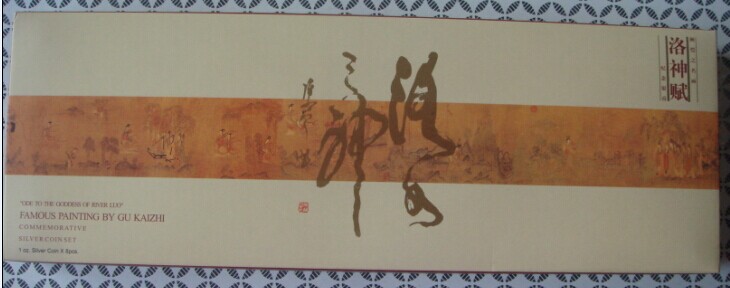 洛神赋
洛水
之神
"ODE TO THE GODDESS OF RIVER LUO"
FAMOUS PAINTING BY GU KAIZHI
COMMEMORATIVE
SILVER COIN SET
1 oz. Silver Coin X 5pcs